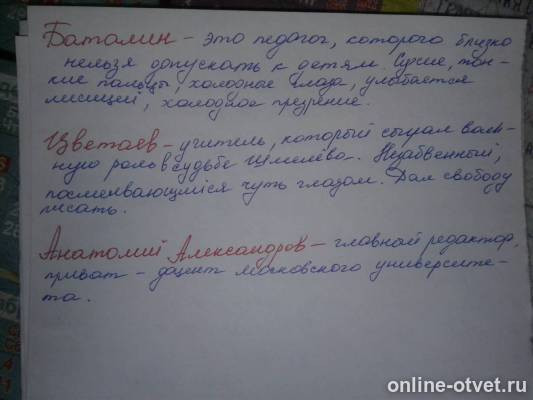 Баталин – это педагог, которого близко
нельзя допускать к детям. Сухие, тон-
кие пальцы, холодные глаза, улыбается
лисицей, холодное презрение.
Цветаев – учитель, который сыграл важ-
ную роль в судьбе Шмелёва. Незабвенный,
посмеивающийся чуть глазом. Дал свободу
писать.
Анатолий Александров – главный редактор,
приват – доцент московского университе-
та.
online-otvet.ru